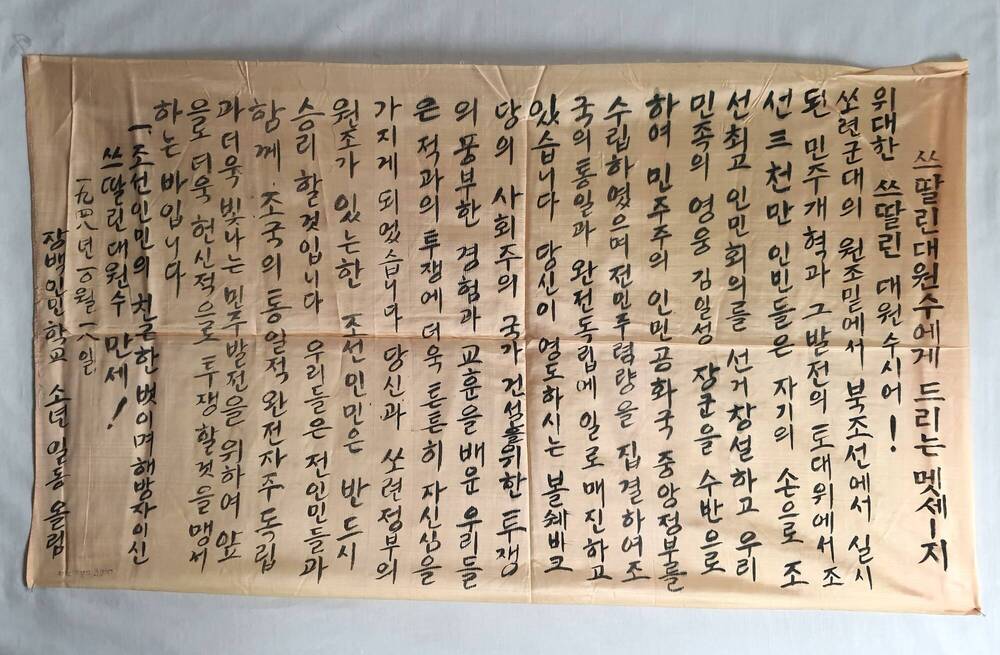 쓰딸린대원수에게 드리는 멧세—지
위대한 쓰딸린 대원수시어!
쏘련군대의 원조밑에서 북조선에서 실시
된 민주개혁과 그발전의 토대위에서 조
선 三천만 인민들은 자기의 손으로 조
선최고 인민회의를 선거창설하고 우리
민족의 영웅 김일성 장군을 수반으로
하여 민주주의 인민공화국 중앙정부를
수립하였으며 전민주력량을 집결하여 조
국의 통일과 완전독립에 일로매진하고
있습니다 당신이 영도하시는 볼쉐바크
당의 사회주의 국가건설을위한 투쟁
의 풍부한 경험과 교훈을 배운 우리들
은 적과의 투쟁에 더욱 튼튼히 자신심을
가지게 되었습니다 당신과 쏘련정부의
원조가 있는한 조선인민은 반드시
승리할것입니다 우리들은 전인민들과
함께 조국의 통일적 완전자주독립
과 더욱 빛나는 민주발전을 위하여 앞
을도 더욱 헌신적으로 투쟁할것을 맹서
하는 바입니다
一조선인민의 친근한 벗이며 해방자이신
쓰딸린대원수 만세!
一九四八년 一0월 一八일
장백인민학교 소년 일동 올림